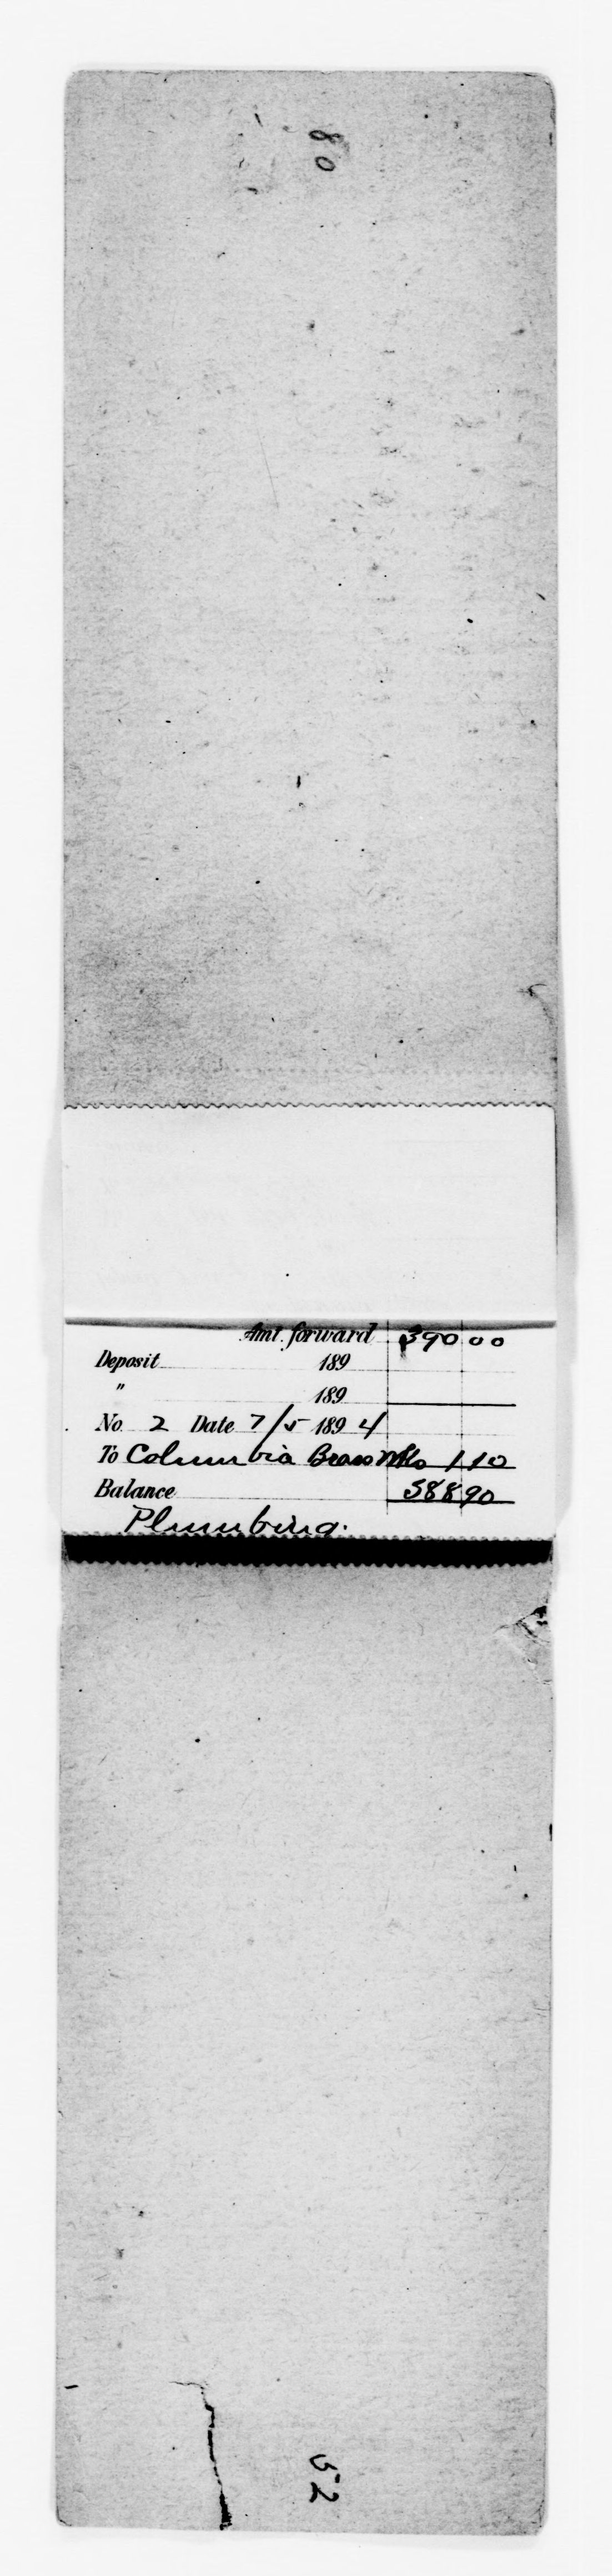 80
Amt. forward 390 00
Deposit 189
" 189
No. 2 Date 7/5 1894
To Columbia Brass Wks 1 10
Balance 388 90
Plumbing.
52